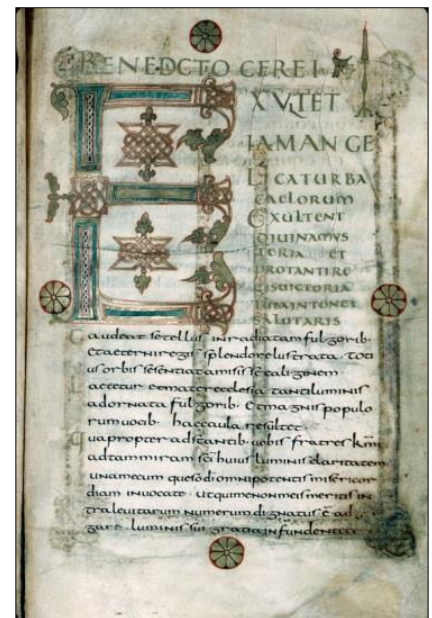 BENEDCTO CEREI
EXULTET
IAM ANGE
LICATURBA
CAELORUM
EXULTENT
DIUINAMYS
TERIA ET
PROTANTIRE
GISUICTORIA
TUBAINTONET
SALUTARIS
Gaudeat setellus inradiatam fulgorib.
Etaeterniregis splendorelustrata. toti
us orbis sesentiat amisisse caliginem.
aecclesia tantiluminis
adornata fulgorib. Etmagnis populo
rum uocib. haecaula resultet
quapropter adstantib. uobis fratres kmi
ad tam miram huius luminis claritatem
unamecum quesodi omnipotentis misericor
diam inuocate. Utquimenonmeis meritis in
traleuitarum numerum dignatus
luminis sui gratia infundentia